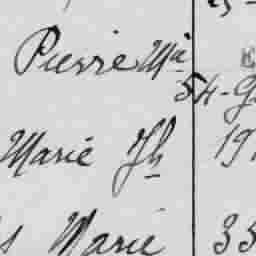 Pierre Mie
54-G
Marie Jh 19
Marie 35